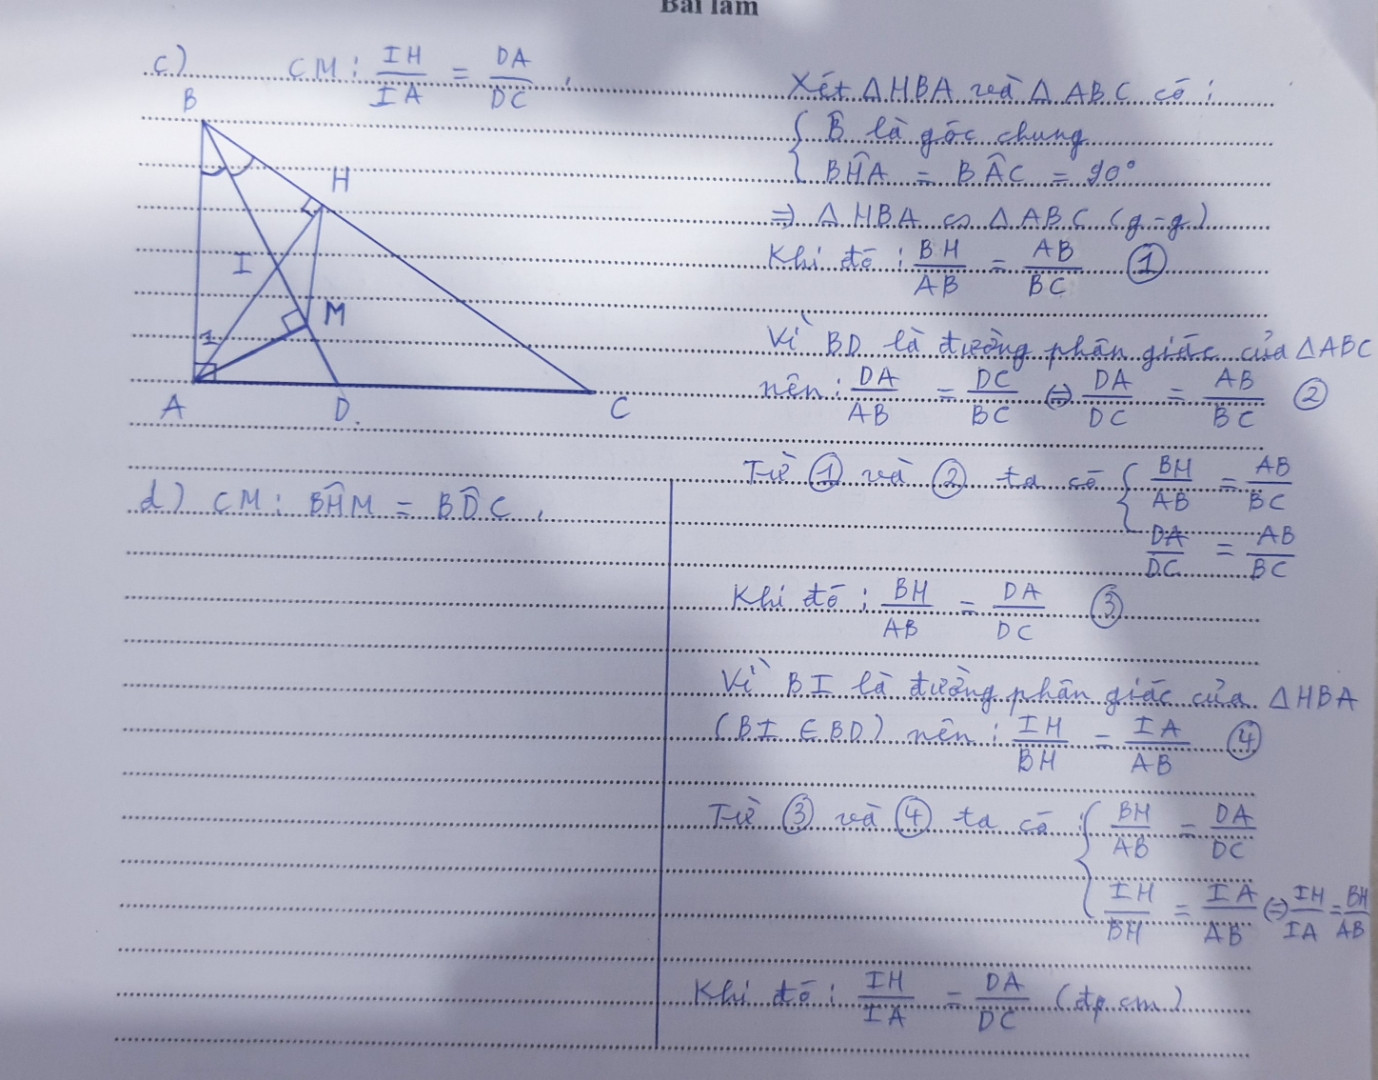 Bài làm
c) CM: IH/IA = DA/DC.
B
H
I
M
1
A
D.
C
d) CM: BĤM = BD̂C.
Xét ΔHBA và Δ ABC có:
{ B̂ là góc chung
BĤA = BÂC = 90°
⇒ Δ HBA ∽ Δ ABC (g-g)
Khi đó: BH/AB = AB/BC ①
Vì BD là đường phân giác của ΔABC
nên: DA/AB = DC/BC ⇔ DA/DC = AB/BC ②
Từ ① và ② ta có { BH/AB = AB/BC
DA/DC = AB/BC
Khi đó: BH/AB = DA/DC ③
Vì BI là đường phân giác của ΔHBA
(BI ∈ BD) nên: IH/BH = IA/AB ④
Từ ③ và ④ ta có: { BH/AB = DA/DC
IH/BH = IA/AB ⇔ IH/IA = BH/AB
Khi đó: IH/IA = DA/DC (đpcm)